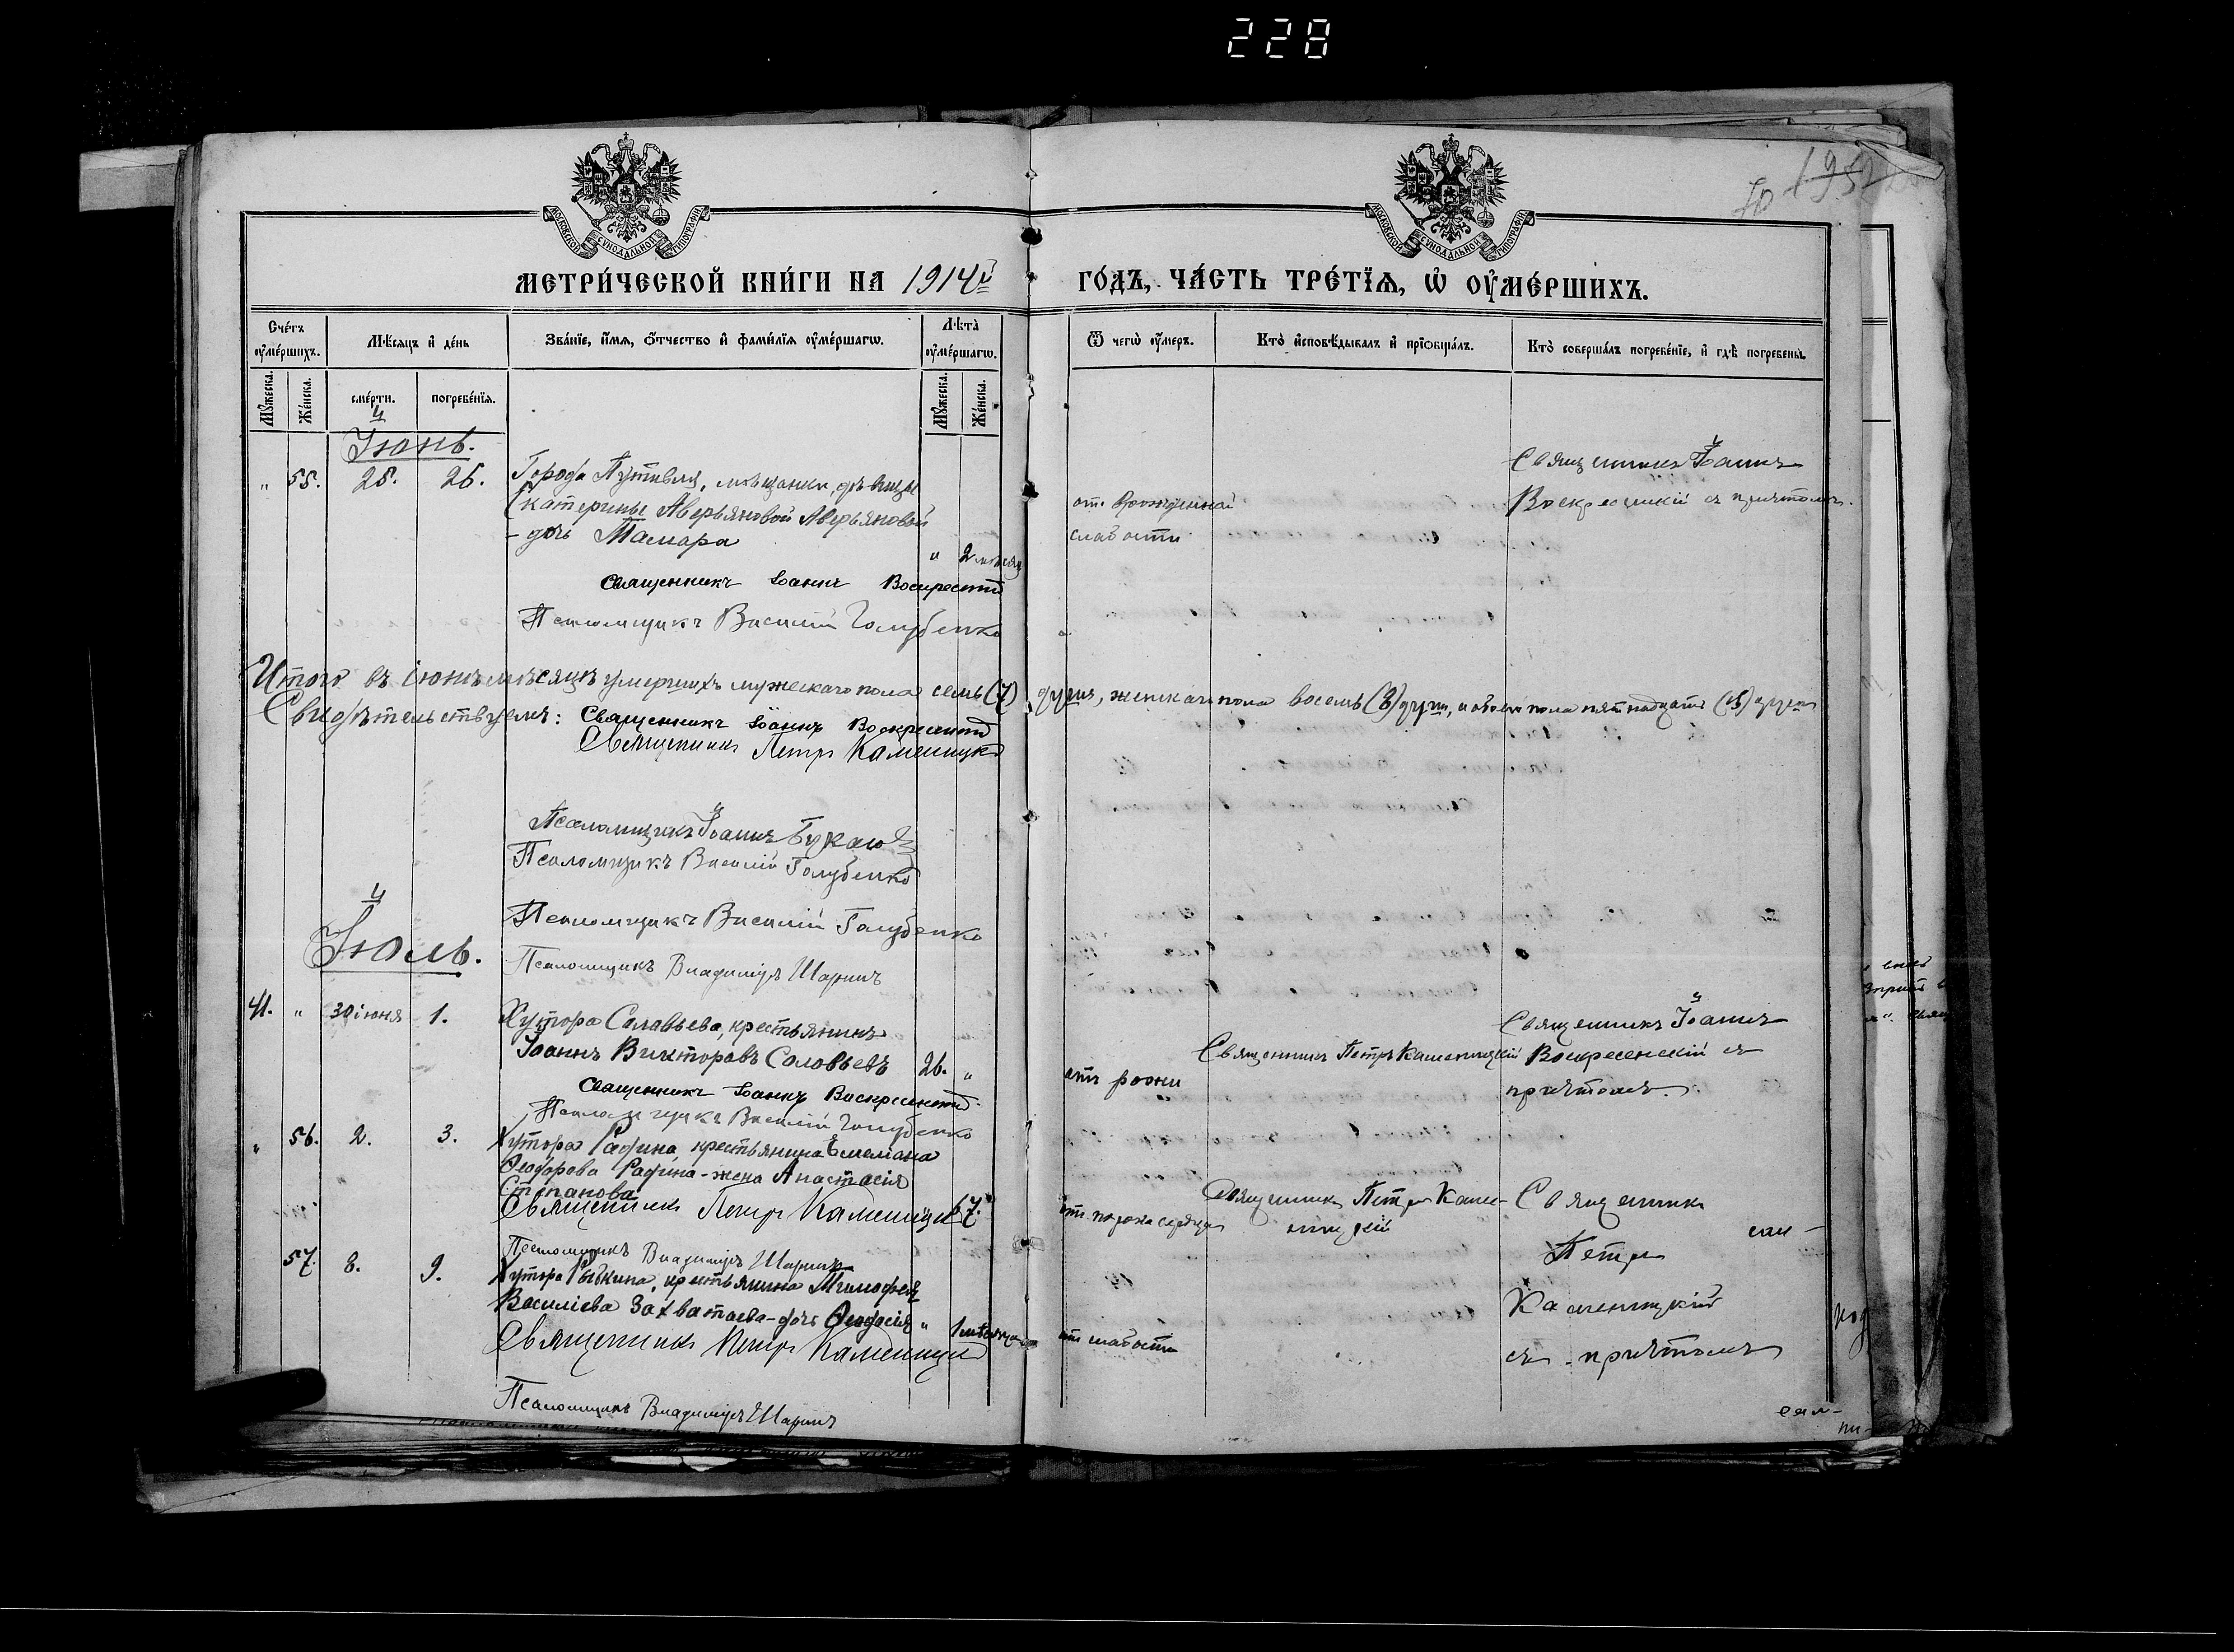 228
МОСКОВСКОЙ СѴНОДАЛЬНОЙ ТИПОГРАФІИ
МОСКОВСКОЙ СѴНОДАЛЬНОЙ ТИПОГРАФІИ
МЕТРИ́ЧЕСКОЙ КНИ́ГИ НА 1914й
ГО́ДЪ, ЧА́СТЬ ТРЕ́ТІѦ, Ѡ ОУ҆МЕ́РШИХЪ.
Сче́тъ оу҆ме́ршихъ.
Мѣ́сяцъ и҆ де́нь
Зва́ніе, и҆́мя, ѻ҆́тчество и҆ фами́лія оу҆ме́ршагѡ.
Лѣта̀ оу҆ме́ршагѡ.
Ѿ чегѡ̀ оу҆́меръ.
Кто̀ и҆сповѣ́дывалъ и҆ пріѡбща́лъ.
Кто̀ соверша́лъ погребе́ніе, и҆ гдѣ̀ погребены̀.
Мꙋ́жеска.
Же́нска.
сме́рти.
погребе́нія.
Мꙋ́жеска.
Же́нска.
Іюнь.
" 55. 25. 26. Города Путивля, мѣщанки, дѣвицы
Екатерины Аверьяновой Аверьяновой
- дочь Тамара
" 2 мѣсяц
от врожденной
слабости
Священникъ Іоаннъ
Воскресенскій съ причтомъ.
Священникъ Іоаннъ Воскресенскій
Псаломщикъ Василій Голубенко
Итого въ іюнѣ мѣсяцѣ умершихъ мужескаго пола семь (7) душъ, женскаго пола восемь (8) душъ, и обоего пола пятнадцать (15) душъ
Свидѣтельствуемъ: Священникъ Іоаннъ Воскресенскій
Священникъ Петръ Каменицкій
Псаломщикъ Іоаннъ
Псаломщикъ Василій Голубенко
Псаломщикъ Василій Голубенко
Іюль.
Псаломщикъ Владиміръ Шаринъ
41. " 30 іюня 1. Хутора Соловьева, крестьянинъ
Іоаннъ Викторовъ Соловьевъ 26. "
отъ рожи
Священникъ Петръ Каменицкій
Священникъ Іоаннъ
Воскресенскій съ
причтомъ.
Священникъ Іоаннъ Воскресенскій.
Псаломщикъ Василій Голубенко
" 56. 2. 3. Хутора Радина, крестьянина Емеліана
Ѳеодорова Радина - жена Анастасія
Степанова 67.
отъ порока сердца
Священникъ Петръ Каме-
ницкій
Священникъ
Петръ
Каменицкій
съ причтомъ
Священникъ Петръ Каменицкій
Псаломщикъ Владиміръ Шаринъ
57. 8. 9. Хутора Рыбкина, крестьянина Тимофея
Василіева Захватаева - дочь Ѳеодосія " 1 мѣсяца
от слабости
Священникъ Петръ Каменицкій
Псаломщикъ Владиміръ Шаринъ